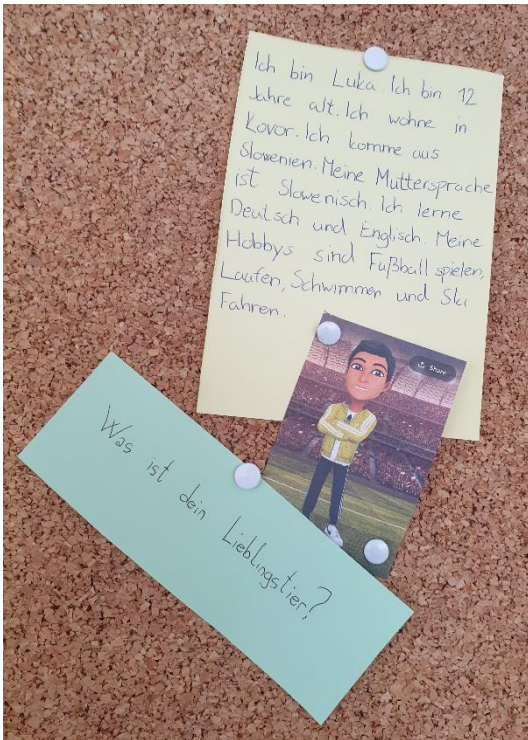 Ich bin Luka. Ich bin 12
Jahre alt. Ich wohne in
Kovor. Ich komme aus
Slowenien. Meine Muttersprache
ist Slowenisch. Ich lerne
Deutsch und Englisch. Meine
Hobbys sind Fußball spielen,
Laufen, Schwimmen und Ski
Fahren.
Share
Was ist dein Lieblingstier?